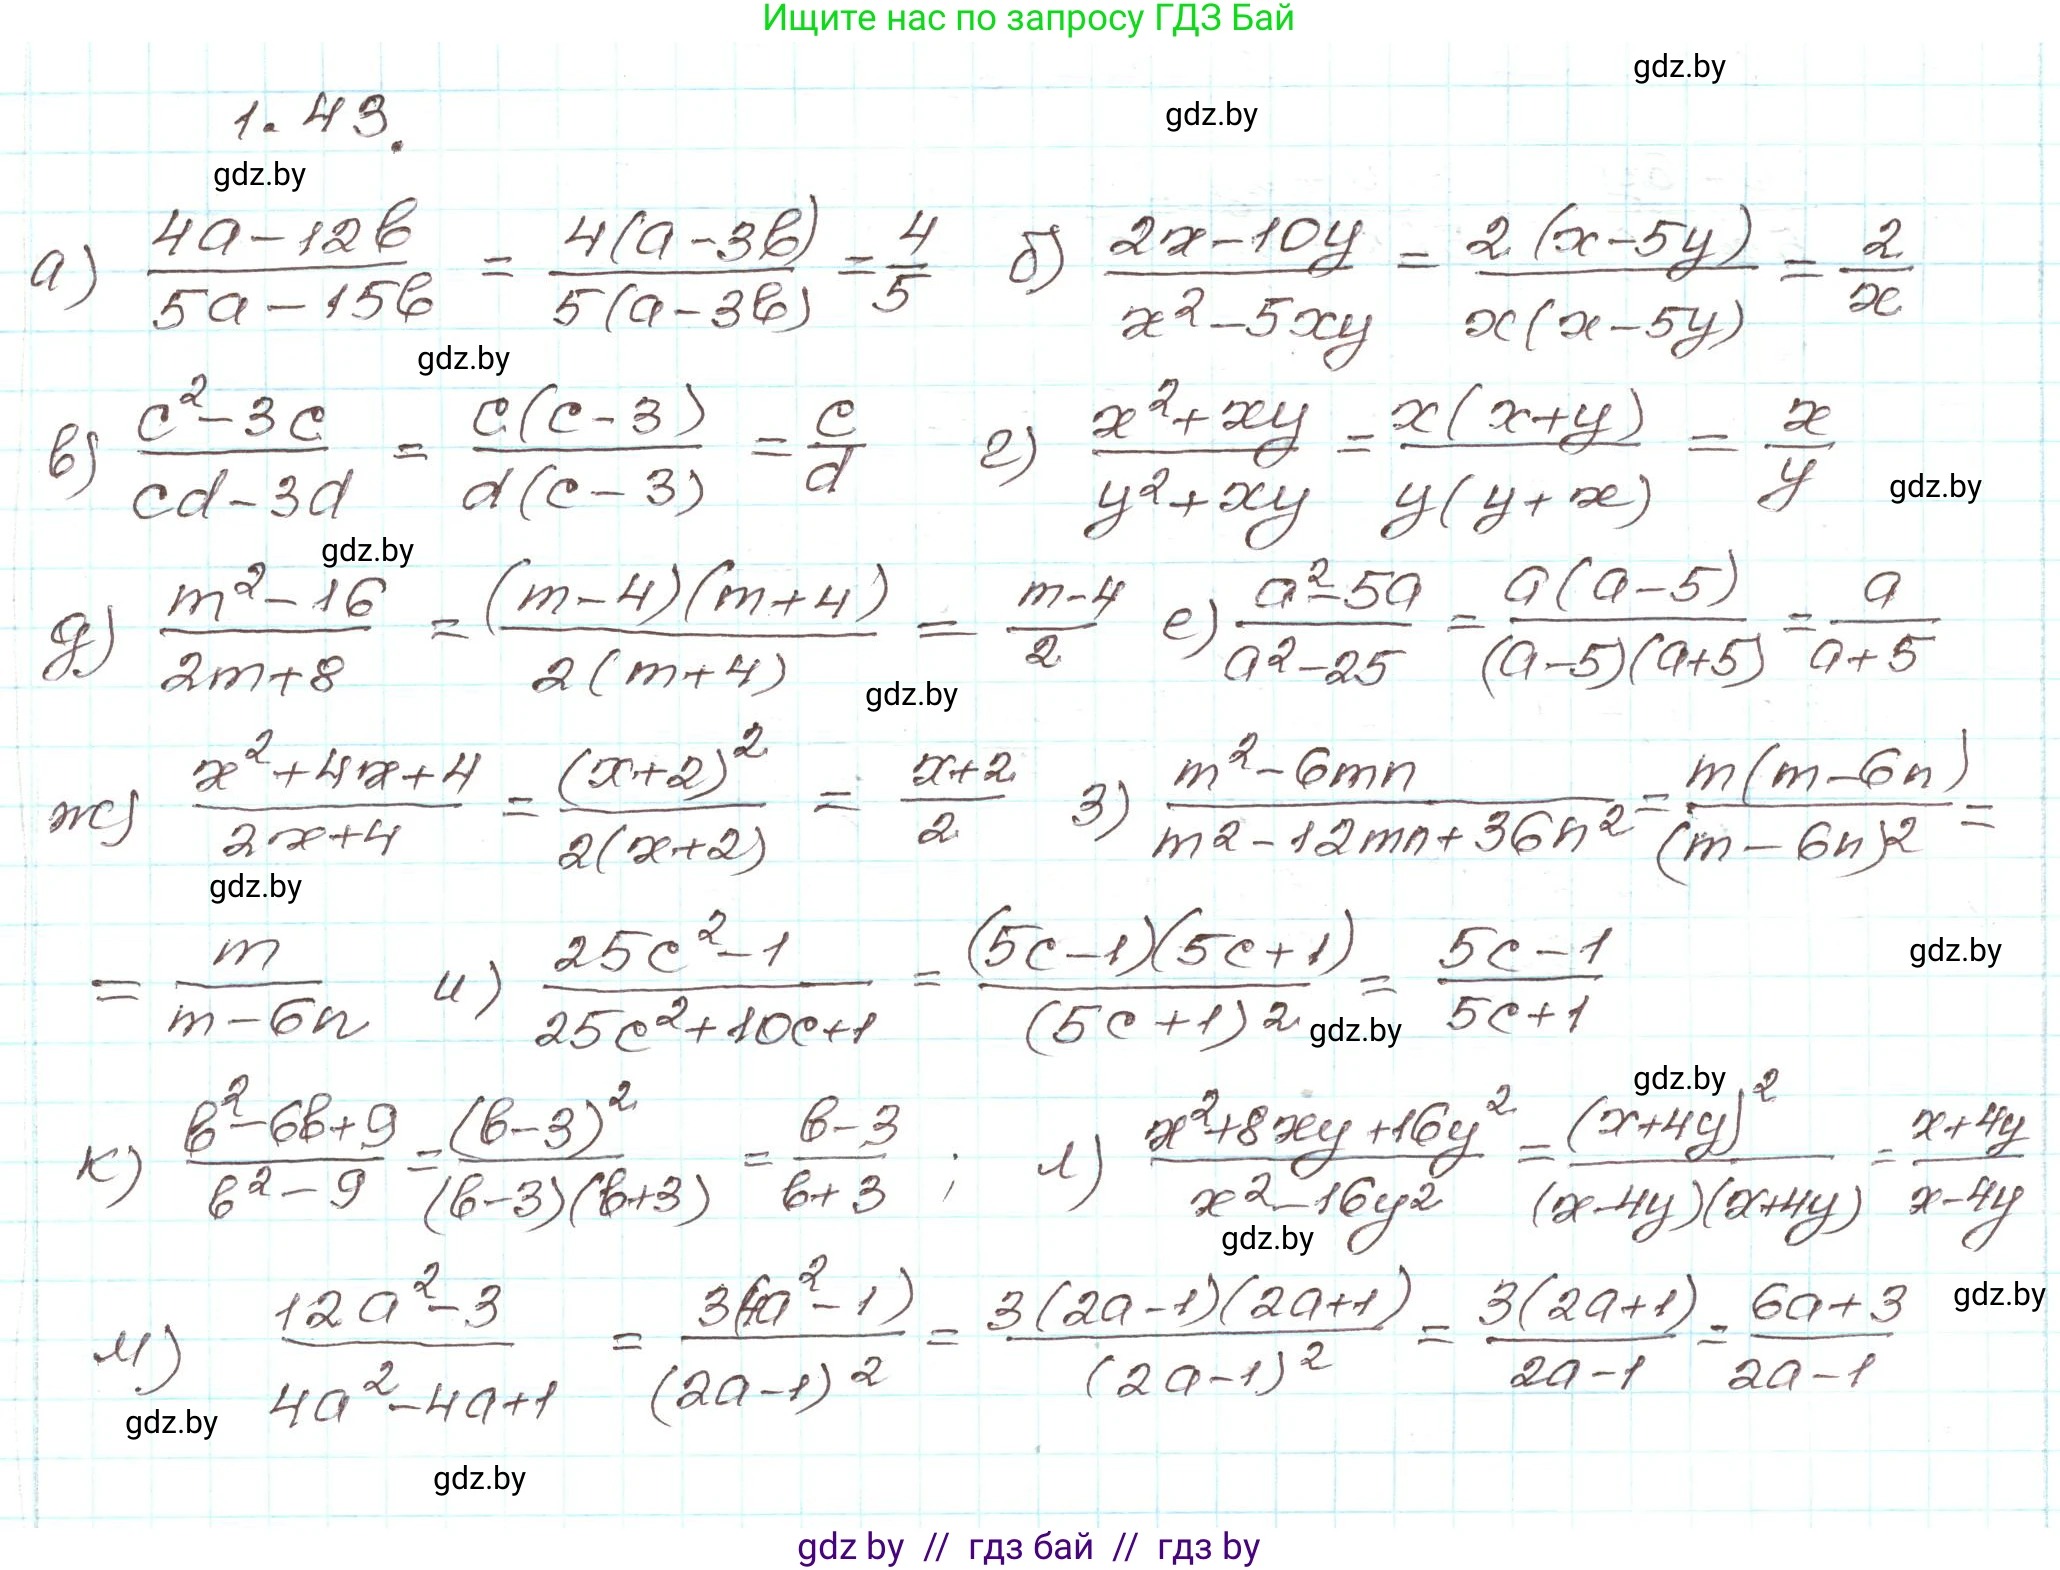 Ищите нас по запросу ГДЗ Бай
gdz.by
gdz.by
1.43.
gdz.by
а) (4a-12b)/(5a-15b) = 4(a-3b)/5(a-3b) = 4/5 б) (2x-10y)/(x²-5xy) = 2(x-5y)/x(x-5y) = 2/x
gdz.by
в) (c²-3c)/(cd-3d) = c(c-3)/d(c-3) = c/d г) (x²+xy)/(y²+xy) = x(x+y)/y(y+x) = x/y
gdz.by
gdz.by
д) (m²-16)/(2m+8) = (m-4)(m+4)/2(m+4) = (m-4)/2 е) (a²-5a)/(a²-25) = a(a-5)/(a-5)(a+5) = a/(a+5)
gdz.by
ж) (x²+4x+4)/(2x+4) = (x+2)²/2(x+2) = (x+2)/2 з) (m²-6mn)/(m²-12mn+36n²) = m(m-6n)/(m-6n)² =
gdz.by
= m/(m-6n) и) (25c²-1)/(25c²+10c+1) = (5c-1)(5c+1)/(5c+1)² = (5c-1)/(5c+1)
gdz.by
gdz.by
gdz.by
к) (b²-6b+9)/(b²-9) = (b-3)²/(b-3)(b+3) = (b-3)/(b+3) ; л) (x²+8xy+16y²)/(x²-16y²) = (x+4y)²/(x-4y)(x+4y) = (x+4y)/(x-4y)
gdz.by
м) (12a²-3)/(4a²-4a+1) = 3(4a²-1)/(2a-1)² = 3(2a-1)(2a+1)/(2a-1)² = 3(2a+1)/(2a-1) = (6a+3)/(2a-1)
gdz.by
gdz.by
gdz.by
gdz by // гдз бай // гдз by